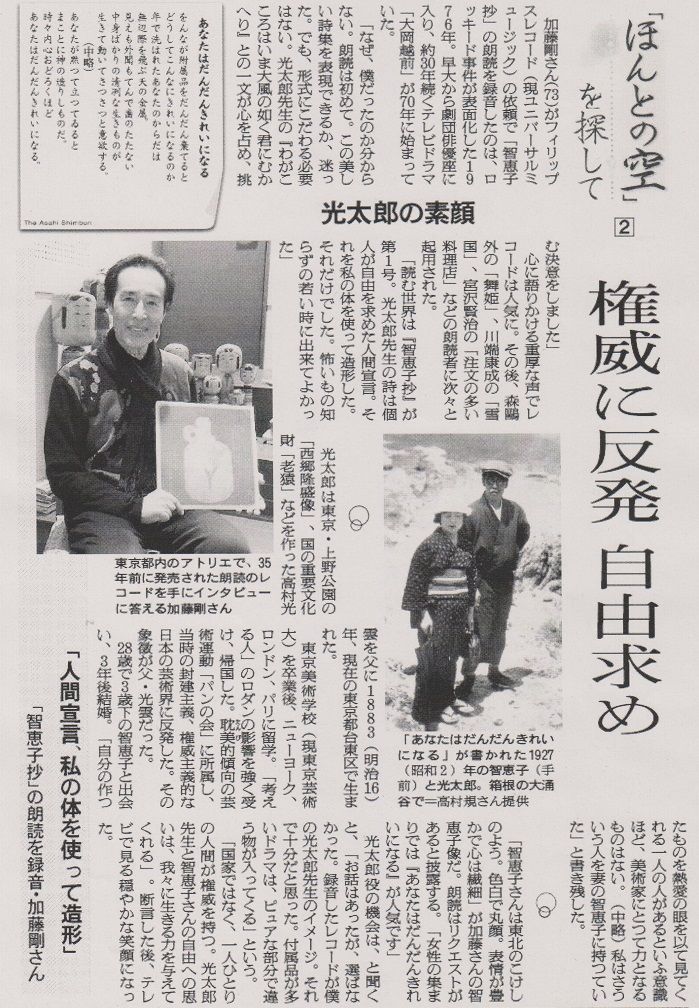 「ほんとの空」
を探して
2
権威に反発 自由求め
光太郎の素顔
加藤剛さん(73)がフィリップ
スレコード(現ユニバーサルミ
ュージック)の依頼で「智恵子
抄」の朗読を録音したのは、ロ
ッキード事件が表面化した19
76年。早大から劇団俳優座に
入り、約30年続くテレビドラマ
「大岡越前」が70年に始まって
いた。
「なぜ、僕だったのか分から
ない。朗読は初めて。この美し
い詩集を表現できるか、迷っ
た。でも、形式にこだわる必要
はない。光太郎先生の『わがこ
ころはいま大風の如く君にむか
へり』との一文が心を占め、挑
む決意をしました」
心に語りかける重厚な声でレ
コードは人気に。その後、森鷗
外の「舞姫」、川端康成の「雪
国」、宮沢賢治の「注文の多い
料理店」などの朗読者に次々と
起用された。
「読む世界は『智恵子抄』が
第1号。光太郎先生の詩は個
人が自由を求めた人間宣言。そ
れを私の体を使って造形した。
それだけでした。怖いもの知
らずの若い時に出来てよかっ
た」
光太郎は東京・上野公園の
「西郷隆盛像」、国の重要文化
財「老猿」などを作った高村光
雲を父に1883(明治16)
年、現在の東京都台東区で生ま
れた。
東京美術学校(現東京芸術
大)を卒業後、ニューヨーク、
ロンドン、パリに留学。「考え
る人」のロダンの影響を強く受
け、帰国した。耽美的傾向の芸
術運動「パンの会」に所属し、
当時の封建主義、権威主義的な
日本の芸術界に反発した。その
象徴が父・光雲だった。
28歳で3歳下の智恵子と出会
い、3年後結婚。「自分の作つ
たものを熱愛の眼を以て見てく
れる一人の人があるといふ意識
ほど、美術家にとつて力となる
ものはない。(中略)私はさう
いう人を妻の智恵子に持つてい
た」と書き残した。
「智恵子さんは東北のこけし
のよう。色白で丸顔。表情が豊
かで心は繊細」が加藤さんの智
恵子像だ。朗読はリクエストが
あると披露する。「女性の集ま
りでは『あなたはだんだんきれ
いになる』が人気です」
光太郎役の機会は、と聞く
と、「お話はあったが、選ばな
かった。録音したレコードが僕
の光太郎先生のイメージ。それ
で十分だと思った。付属品が多
いドラマは、ピュアな部分で違
う物が入ってくる」という。
「国家ではなく、一人ひとり
の人間が権威を持つ。光太郎
先生と智恵子さんの自由への思
いは、我々に生きる力を与えて
くれる」。断言した後、テレ
ビで見る穏やかな笑顔になっ
た。
あなたはだんだんきれいになる
をんなが附属品をだんだん棄てると
どうしてこんなにきれいになるのか
年で洗はれたあなたのからだは
無辺際を飛ぶ天の金属。
見えも外聞もてんで歯のたたない
中身ばかりの清冽な生きものが
生きて動いてさつさつと意慾する。
(中略)
あなたが黙つて立つてゐると
まことに神の造りしものだ。
時々内心おどろくほど
あなたはだんだんきれいになる。
The Asahi Shimbun
東京都内のアトリエで、35
年前に発売された朗読のレ
コードを手にインタビュー
に答える加藤剛さん
「あなたはだんだんきれい
になる」が書かれた1927
(昭和2)年の智恵子(手
前)と光太郎。箱根の大涌
谷で=高村規さん提供
「人間宣言、私の体を使って造形」
「智恵子抄」の朗読を録音・加藤剛さん